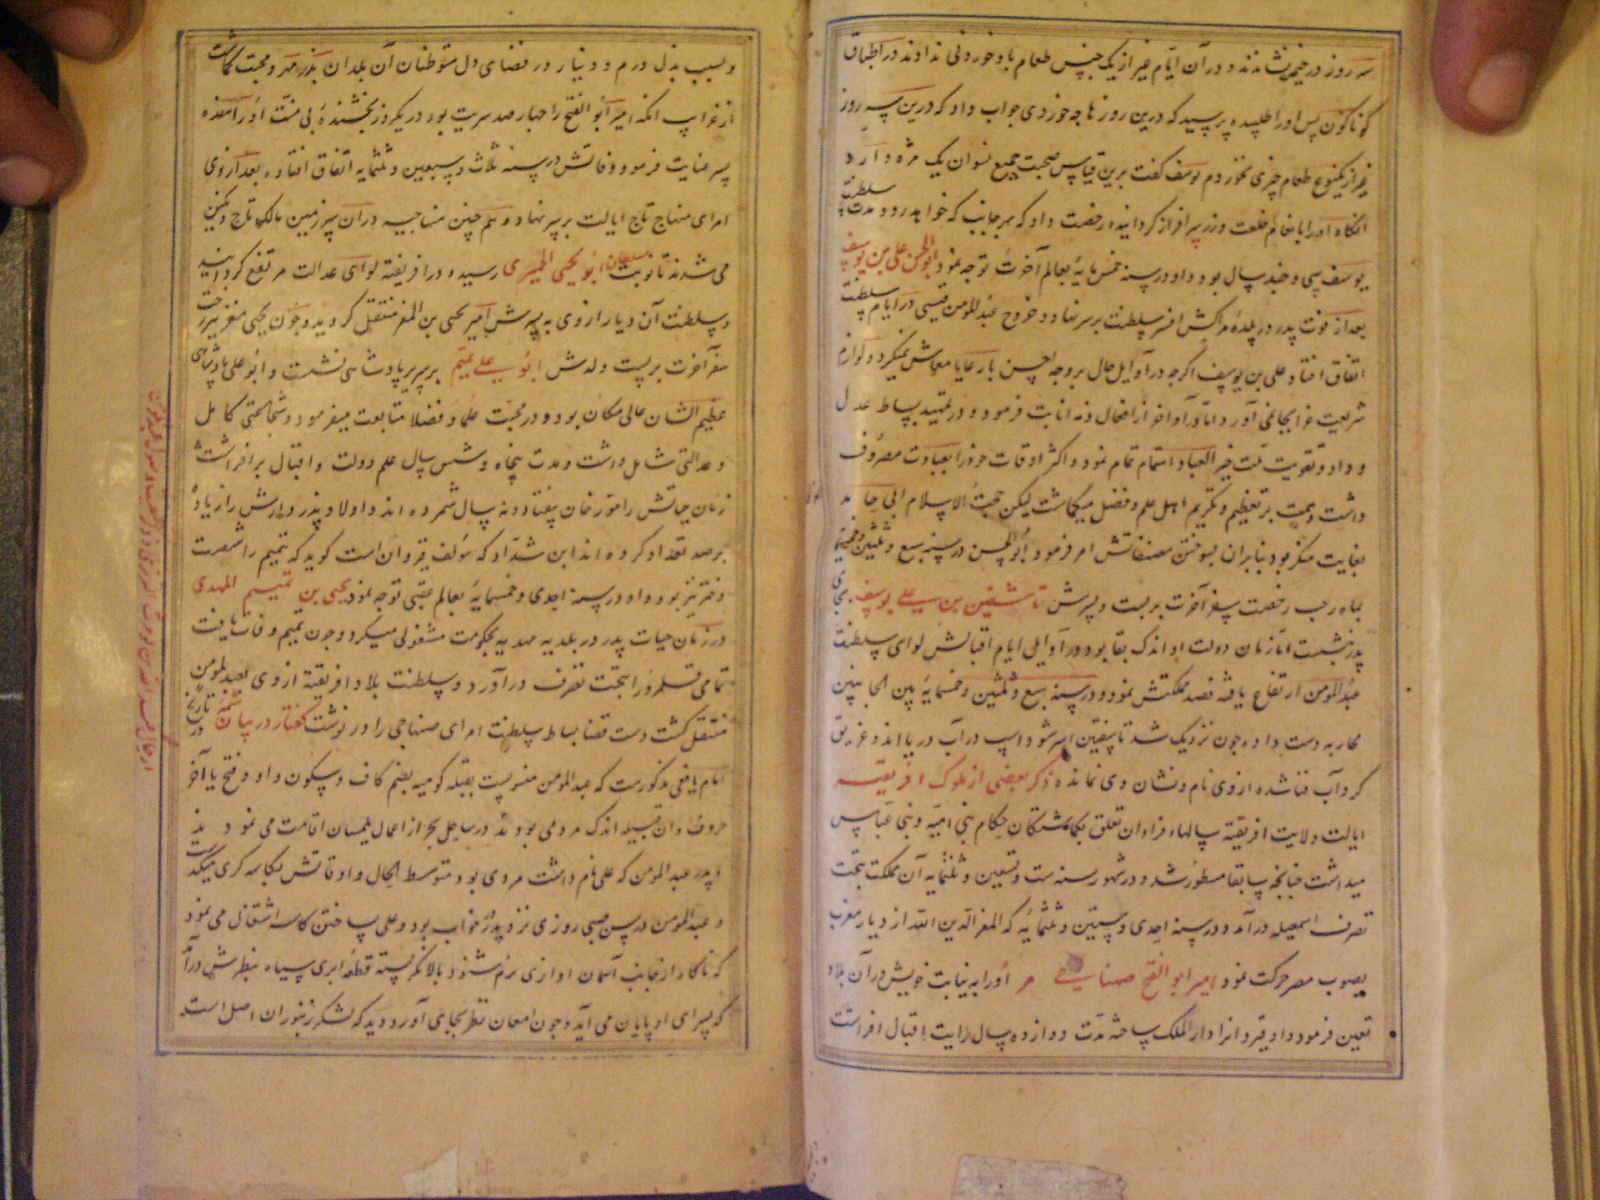 سه روز در خیمه نشاندند و در آن ایام غیر از یک جنس طعام با و خوردنی ندادند در اطباق
کوناکون پس او را طلبیده پرسید که درین روزها چه خوردی جواب داد که درین سه روز
غیر از یکنوع طعام چیزی نخوردم یوسف کفت برین قیاس صحبت جمیع نسوان یک مزه دارد
انکاه او را بانعام خلعت و زر سرافراز کردانیده رخصت داد که بهر جانب که خواهد رود و مدت سلطنت
یوسف سی و چند سال بود و او در سنه خمسمایه بعالم آخرت توجه نمود ابو الحسن علی بن یوسف
بعد از فوت پدر در بلده مراکش افسر سلطنت بر سر نهاد و خروج عبد المومن قیسی در ایام سلطنت
اتفاق افتاد و علی بن یوسف اکرچه در اوایل حال بر وجه احسن با رعایا معاش نمیکرد و لوازم
شریعت غرا بجا نمی آورد اما در اواخر از افعال ذمیمه انابت فرمود و در تمهید بساط عدل
و داد و تقویت ملت خیر العباد اهتمام تمام نمود و اکثر اوقات خود را بعبادت مصروف
داشت و همت بر تعظیم و تکریم اهل علم و فضل میکماشت لیکن حجت الاسلام ابی حامد
بغایت منکر بود بنابران بسوختن مصنفاتش امر فرمود و ابو الحسن در سنه سبع و ثلثین و خمسمایه
بماه رجب رخصت سفر آخرت بربست و پسرش تاشفین بن علی یوسف بجای
پدر نشست اما زمان دولت او اندک بقا بود در اوایل ایام اقبالش لوای سلطنت
عبد المومن ارتفاع یافته قصد مملکتش نمود و در سنه سبع و ثلثین و خمسمایه بین الجانبین
محاربه دست داده چون نزدیک شد تاشفین اسیر شود اسپ در آب دریا راند و غریق
کرداب فنا شده از وی نام و نشان نماند ذکر بعضی از ملوک افریقیه
ایالت ولایت افریقیه سالهای فراوان تعلق بکماشتکان حکام بنی امیه و بنی عباس
میداشت چنانچه سابقا مسطور شد و در شهور سنه ست و تسعین و ثلثمایه آن مملکت بتحت
تصرف اسمعیلیه درآمد و در سنه احدی و ستین و ثلثمایه که المعز لدین الله از دیار مغرب
بصوب مصر حرکت نمود امیر ابو الفتح صنهاجی را به نیابت خویش در آن بلاد
تعیین فرمود و او قیروان را دار الملک ساخته مدت دوازده سال رایت اقبال افراشت
و بسبب بذل درم و دینار در فضای دل متوطنان آن بلدان بذر مهر و محبت کاشت
از غرایب آنکه امیر ابو الفتح را چهار صد سریت بود در یکروز بخشنده بی منت او را هفده
پسر عنایت فرمود وفاتش در سنه ثلث و سبعین و ثلثمایه اتفاق افتاد و بعد از وی
ایالت بر سر نهاد و هم چنین صنهاجیه در آن سرزمین مالک تاج و نکین
می شدند تا نوبت سلطان ابو یحیی الحمیری رسید و در افریقیه لوای عدالت مرتفع کردانید
و سلطنت آن دیار از وی به پسرش امیر یحیی بن المعز منتقل کردید و چون یحیی معز نیز رخت
سفر آخرت بربست ولدش ابو علی تمیم بر سریر پادشاهی نشست و ابو علی پادشاهی
عظیم الشان عالی مکان بود و در محبت علما و فضلا متابعت میفرمود و شجاعتی کامل
و عدالتی شامل داشت و مدت پنجاه و شش سال علم دولت و اقبال برافراشت
زمان حیاتش را مورخان هفتاد و نه سال شمرده اند و اولاد پدر وارش را زیاده
بر صد تعداد کرده اند ابن شداد که مولف قیروان است کوید که تمیم را شصت
دختر نیز بود و او در سنه احدی و خمسمایه بعالم عقبی توجه نمود یحیی بن تمیم المهدی
در زمان حیات پدر در بلده مهدیه بحکومت مشغولی میکرد و چون تمیم وفات یافت
تمامی قلمرو را بتحت تصرف درآورد و سلطنت بلاد افریقیه از وی بعبد المومن
منتقل کشت دست قضا بساط سلطنت امرای صنهاجی را در نوشت کفتار در بیان شمه در تاریخ
امام یافعی مذکورست که عبد المومن منسوبست بقبیله کومیه بضم کاف و سکون واو و فتح یا آخر
حروف و آن قبیله اندک مردمی بودند در ساحل بحر از اعمال تلمسان اقامت می نمودند
و پدر عبد المومن که علی نام داشت مردی بود متوسط الحال و اوقاتش بکاسه کری میکذشت
و عبد المومن در سن صبی روزی نزد پدر خواب بود و علی بساختن کاسه اشتغال می نمود
که ناکاه از جانب آسمان آوازی نرم شنود بالا نکریسته قطعه ابری سیاه بنظرش درآمد
که بسرای او پایان می آید و چون امعان نظر بجای آورد دید که لشکر زنبوران اصل است